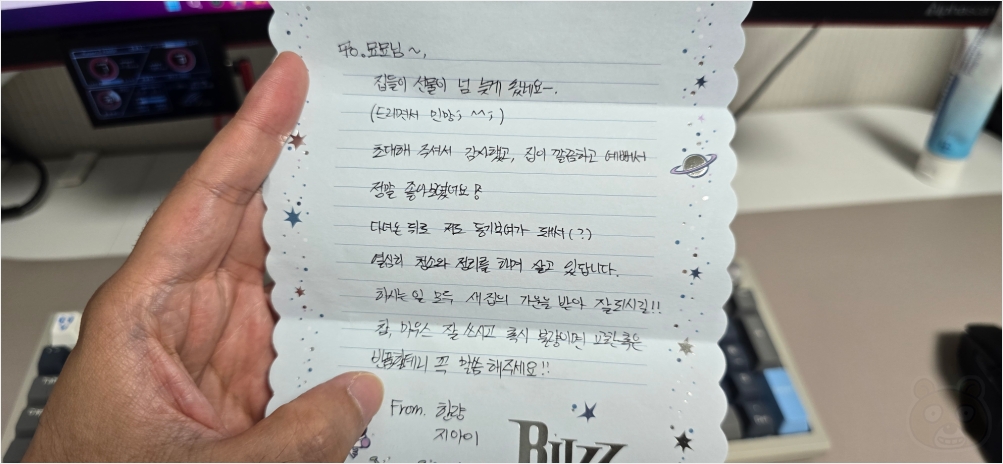 To. 묘묘님~,
집들이 선물이 넘 늦게 왔네요ㅡ.
(드리면서 민망; ^^;)
초대해 주셔서 감사했고, 집이 깔끔하고 예뻐서
정말 좋아보였어요!
다녀온 뒤로 저도 동기부여가 돼서(?)
열심히 청소와 정리를 하며 살고 있답니다.
하시는 일 모두 새집의 기운을 받아 잘되시길!!
참, 마우스 잘 쓰시고 혹시 불량이면 교환 혹은
반품할테니 꼭 말씀해주세요!!
From. 한량
지아이
BUZZ